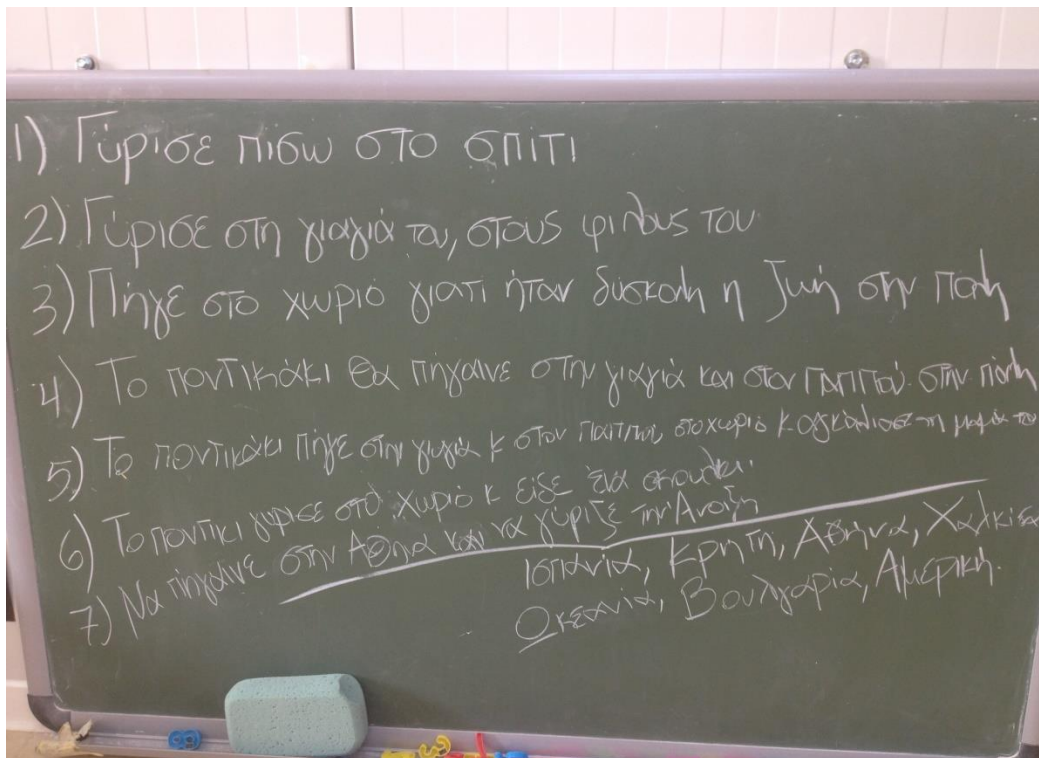 1) Γύρισε πισω στο σπιτι
2) Γύρισε στη γιαγιά του, στους φιλους του
3) Πήγε στο χωριό γιατι ήταν δύσκολη η ζωή στην πολη
4) Το ποντικάκι θα πήγαινε στην γιαγιά και στον παππού στην πόλη
5) Το ποντικάκι πήγε στην γιαγιά κ στον παππου στο χωριό κ αγκάλιασε τη μαμά του
6) Το ποντικι γύρισε στο χωριό κ είδε ένα σκουλικι.
7) Να πήγαινε στην Αθήνα και να γύριζε την Άνοιξη
Ισπανία, Κρητη, Αθήνα,
Ωκεανία, Βουλγαρία, Αμερική.